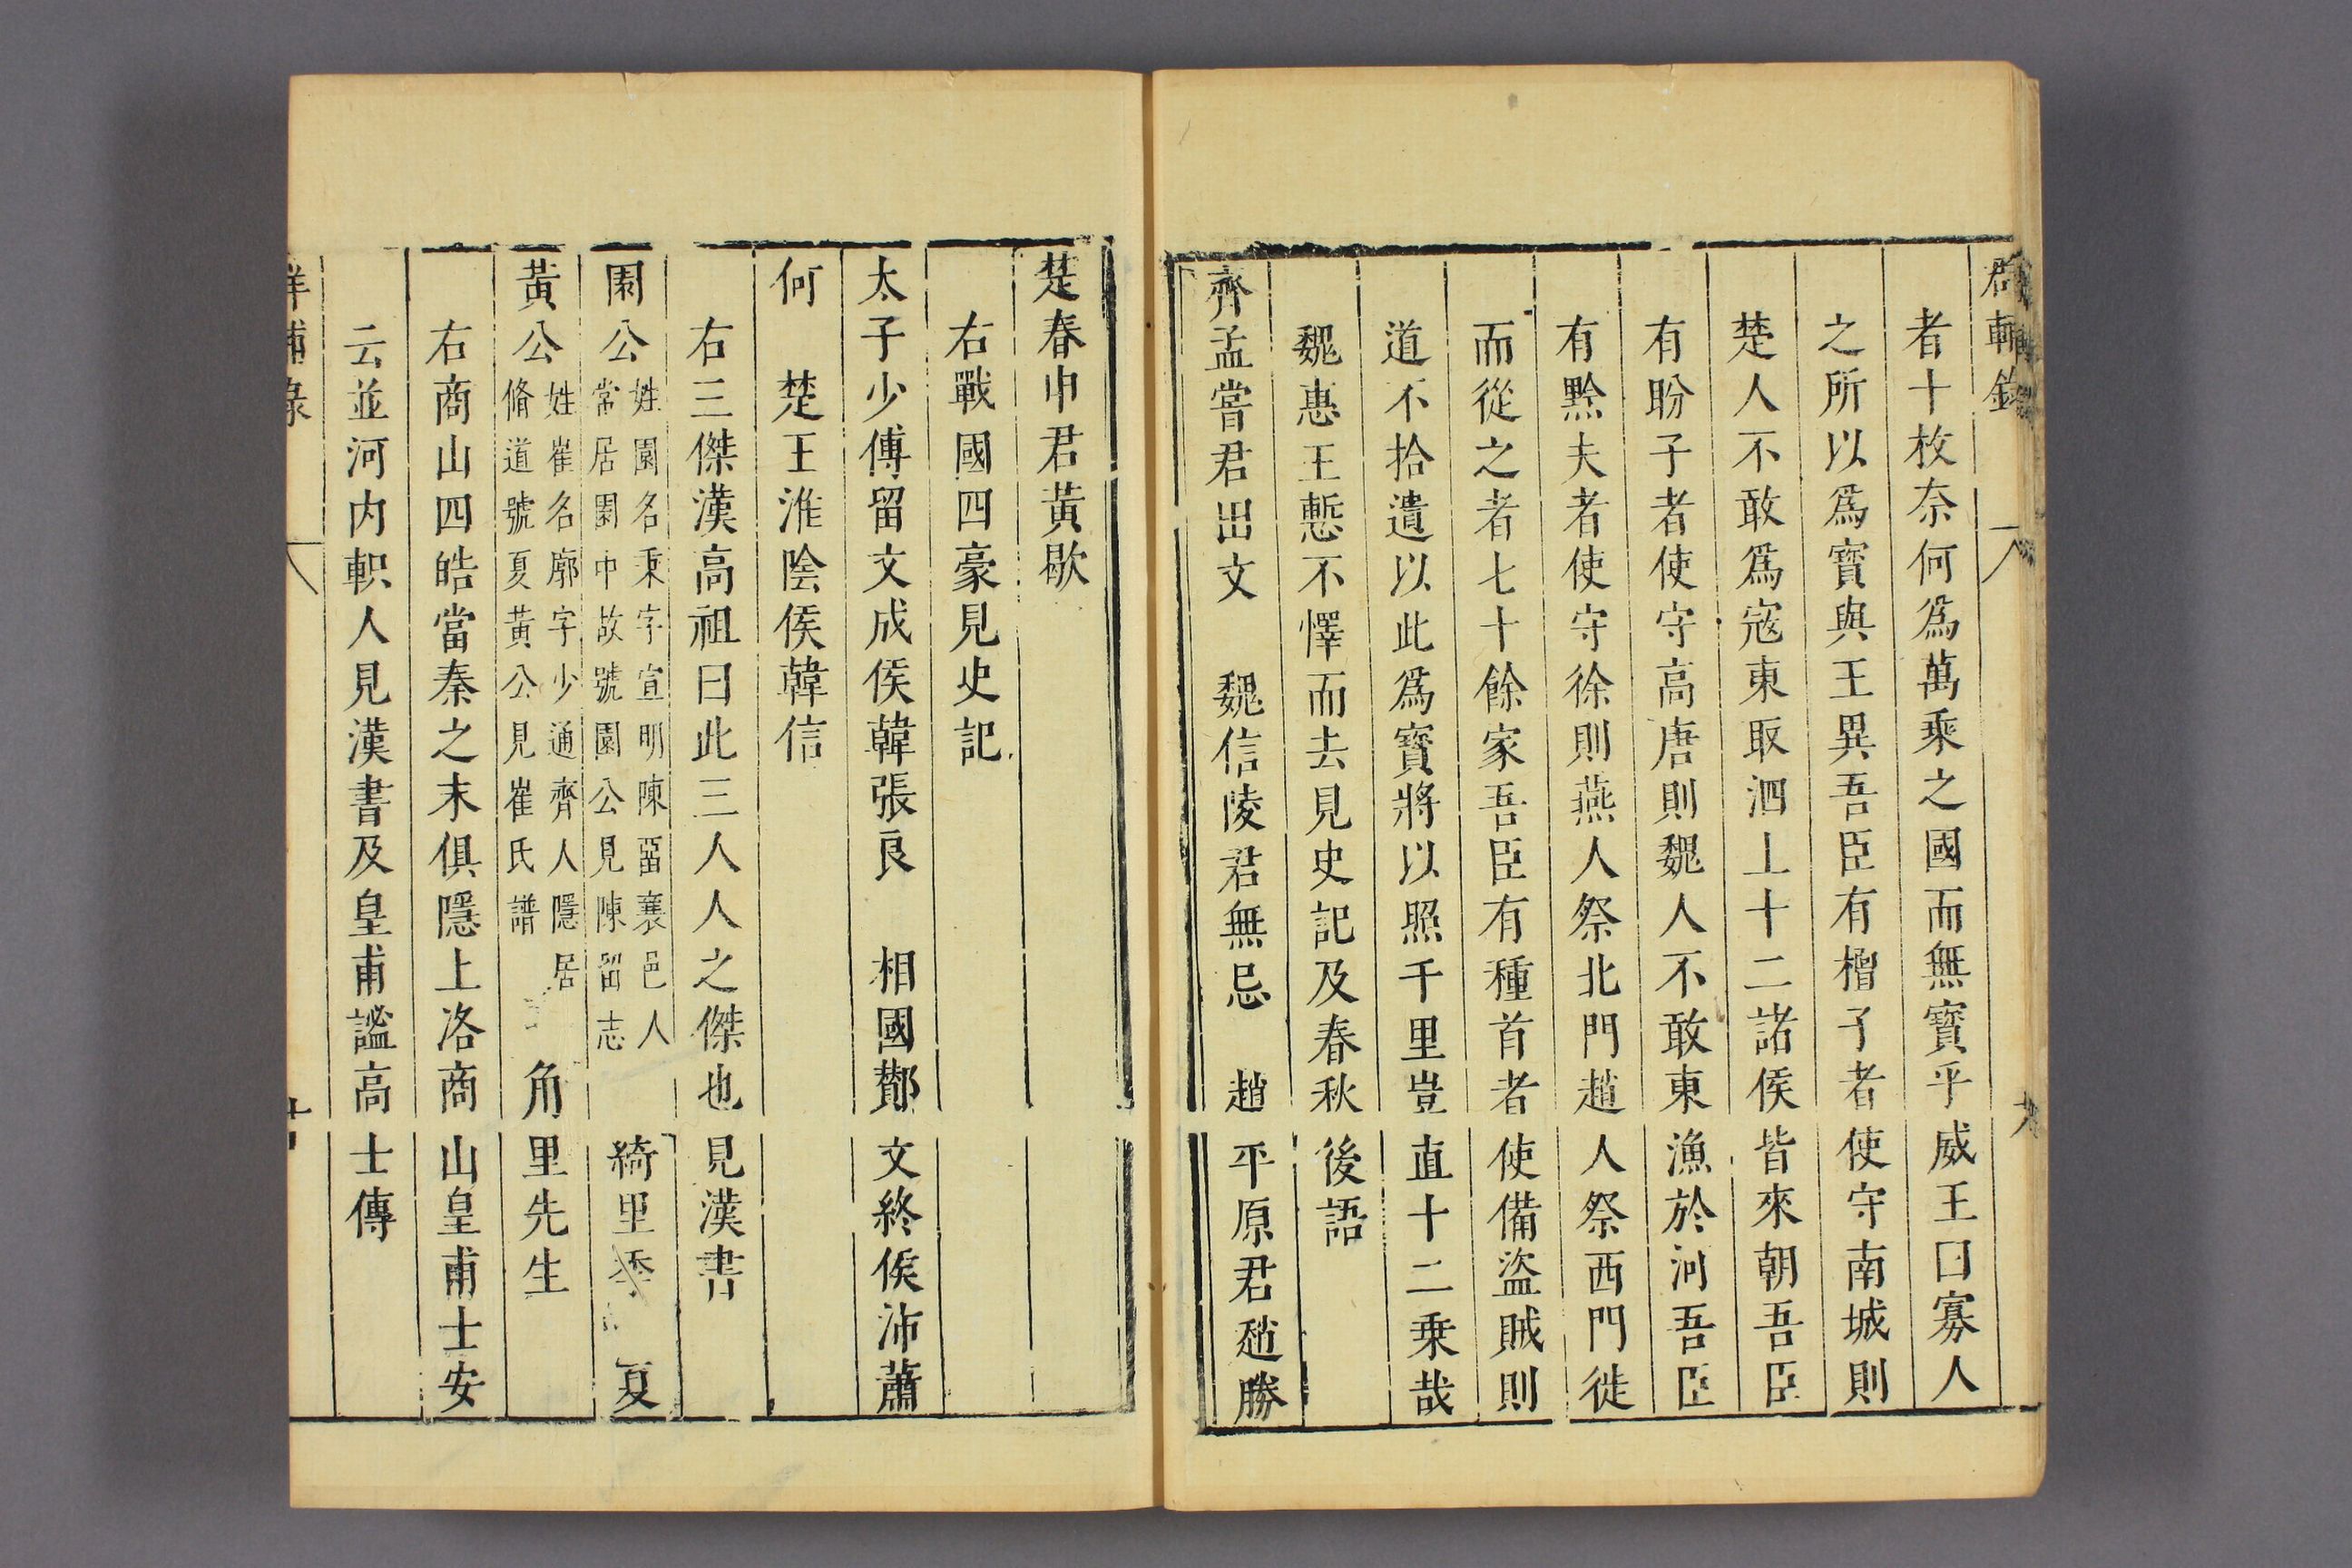 者十枚奈何爲萬乘之國而無寶乎威王曰寡人
之所以爲寶與王異吾臣有檀子者使守南城則
楚人不敢爲寇東取泗上十二諸侯皆來朝吾臣
有盼子者使守高唐則魏人不敢東漁於河吾臣
有黔夫者使守徐則燕人祭北門趙人祭西門徙
而從之者七十餘家吾臣有種首者使備盜賊則
道不拾遺以此爲寶將以照千里豈直十二乘哉
魏惠王慙不懌而去見史記及春秋後語
齊孟嘗君田文 魏信陵君無忌 趙平原君趙勝
楚春申君黃歇
右戰國四豪見史記
太子少傅留文成侯韓張良 相國酇文終侯沛蕭
何 楚王淮陰侯韓信
右三傑漢高祖曰此三人人之傑也見漢書
園公姓園名秉字宣明陳畱襄邑人
常居園中故號園公見陳畱志 綺里季 夏
黃公姓崔名廓字少通齊人隱居
脩道號夏黃公見崔氏譜 角里先生
右商山四皓當秦之末俱隱上洛商山皇甫士安
云並河內軹人見漢書及皇甫謐高士傳